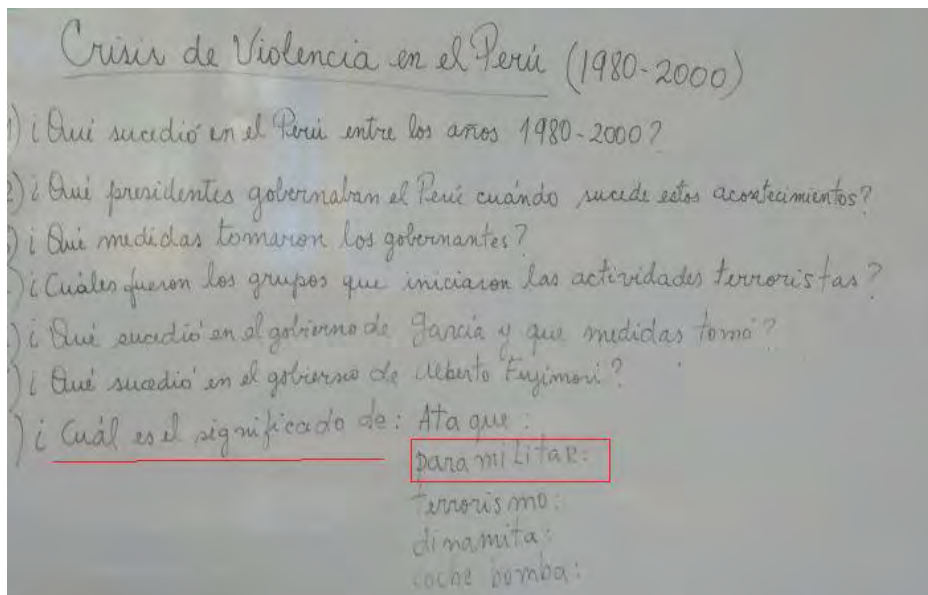 Crisis de Violencia en el Perú (1980-2000)
1) ¿Qué sucedió en el Perú entre los años 1980-2000?
2) ¿Qué presidentes gobernaban el Perú cuándo sucede estos acontecimientos?
) ¿Qué medidas tomaron los gobernantes?
) ¿Cuáles fueron los grupos que iniciaron las actividades terroristas?
) ¿Qué sucedió en el gobierno de García y que medidas tomó?
) ¿Qué sucedió en el gobierno de Alberto Fujimori?
) ¿Cuál es el significado de: Ataque:
paramilitar:
terrorismo:
dinamita:
coche bomba: